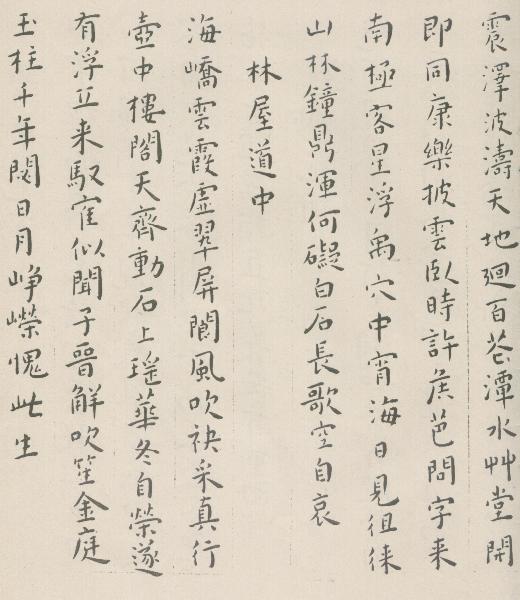 震澤波濤天地廻百花潭水艸堂開
即同康樂披雲臥時許侯芭問字来
南極客星浮禹穴中宵海日見徂徠
山林鐘鼎渾何礙白石長歌空自哀
林屋道中
海嶠雲霞虛翠屏閬風吹袂采真行
壺中樓閣天齊動石上瑤華冬自榮遂
有浮丘来馭寉似聞子晉解吹笙金庭
玉柱千年閟日月崢嶸愧此生